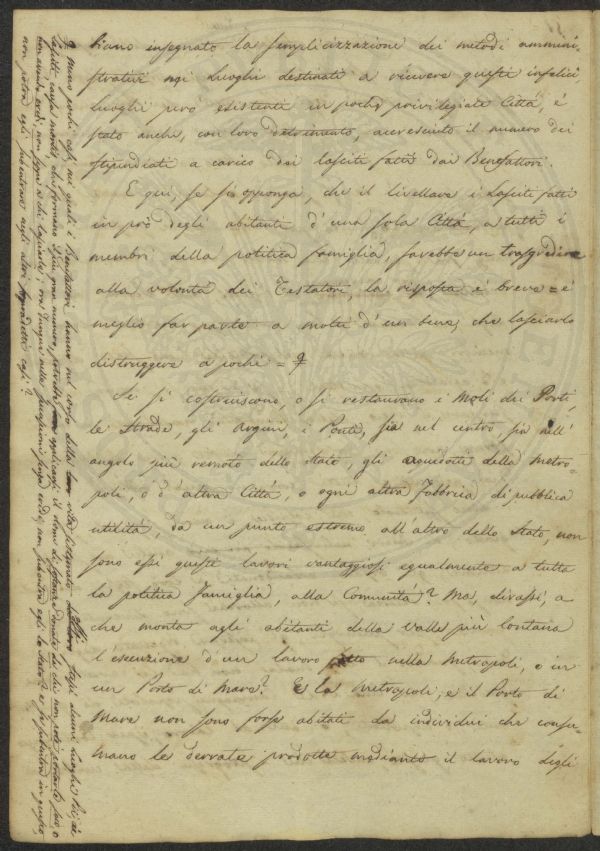 biano insegnato la semplicizzazione dei metodi ammini=
strativi nei Luoghi destinati a ricevere questi infelici,
luoghi però esistenti in poche privilegiate Città, è
stato anche, con loro detrimento, accresciuto il numero dei
stipendiati a carico dei lasciti fatti dai Benefattori.
E qui, se si opponga, che il livellare i Lasciti fatti
in prò degli abitanti d'una sola Città, a tutti i
membri della politica famiglia, sarebbe un trasgredire
alla volontà dei Testatori, la risposta è breve = è
meglio far parte a molti d'un bene, che lasciarlo
distruggere a pochi =
Se si costruiscono, o si restaurano i Moli dei Porti,
le Strade, gli Argini, i Ponti, sia nel centro, sia nell'
angolo più remoto dello Stato, gli aquedotti della Metro=
poli, o d'altra Città, o ogni altra Fabbrica di pubblica
utilità, da un punto estremo all'altro dello Stato, non
sono essi questi lavori vantaggiosi egualmente a tutta
la politica Famiglia, alla Comunità? Ma, dirassi, a
che monta agli abitanti della Valle più lontana
l'esecuzione d'un lavoro fatto nella Metropoli, o in
un Porto di Mare? E la Metropoli, e il Porto di
Mare non sono forse abitati da individui che consu=
mano le derrate prodotte mediante il lavoro degli
casi, nei quali i Benefattori hanno nel corso della loro vita sostenuto alcuni Luoghi Pii, di
Lasciti, causa mortis, che formano il più gran numero, potrebbe applicarsi il nome di donato da chi non può portarlo seco, o
non avendo eredi non sappia a chi lasciarlo; ora dunque nella successione senza eredi, non subentra egli lo Stato? e se subentra in questo,
non potrà egli subentrare negli altri casi?